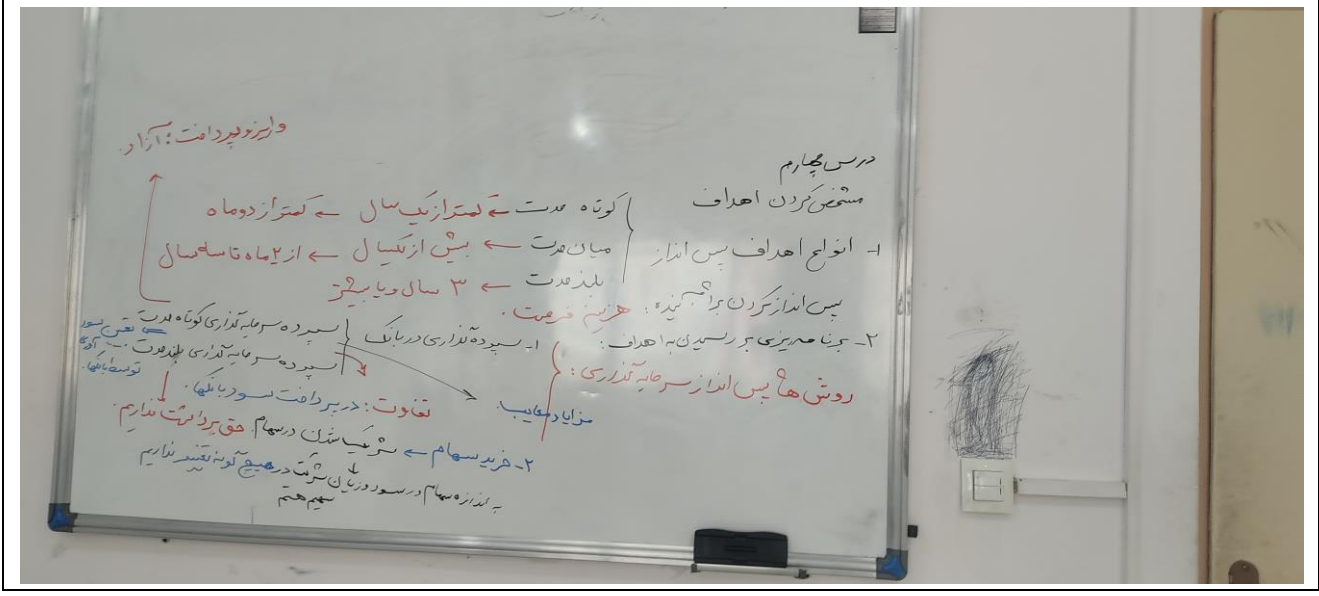 واریز و پرداخت: آزاد.
درس چهارم
مشخص کردن اهداف
۱- انواع اهداف پس انداز
کوتاه مدت ← کمتر از یک سال ← کمتر از دو ماه
میان مدت ← بیش از یکسال ← از ۲ ماه تا سه سال
بلند مدت ← ۳ سال و یا بیشتر
پس انداز کردن برای آینده: هزینه فرصت.
۲- برنامه ریزی بر رسیدن به اهداف:
روش ها پس انداز سرمایه گذاری:
۱- سپرده گذاری در بانک
سپرده سرمایه گذاری کوتاه مدت
سپرده سرمایه گذاری بلند مدت
توسط بانکها.
تفاوت: در پرداخت سود بانکها.
حق برداشت نداریم.
مزایا و معایب.
۲- خرید سهام ← شریک شدن در سهام.
به اندازه سهام در سود و زیان شرکت
سهیم هستم